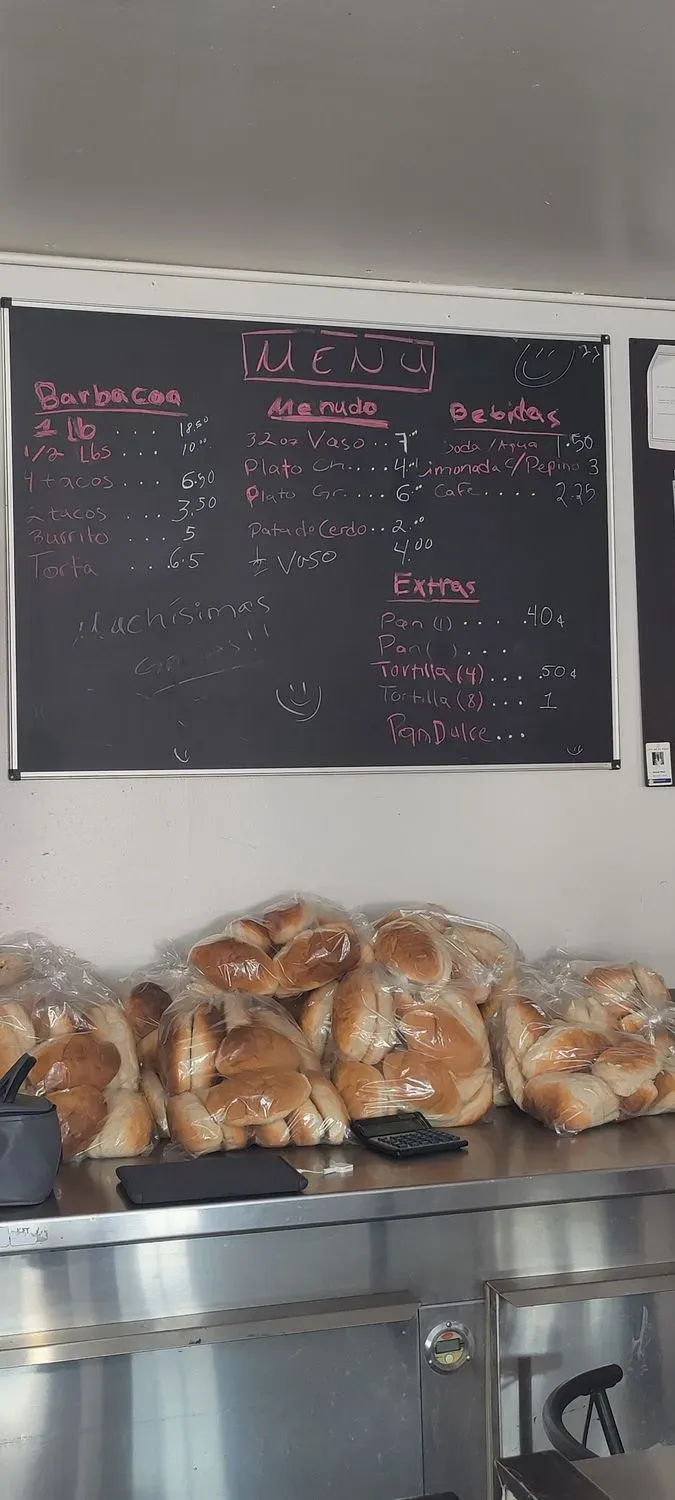 MENU
Barbacoa
1 lb . . . 18.50
1/2 Lbs . . . 10.00
4 tacos . . . 6.50
2 tacos . . . 3.50
Burrito . . . 5
Torta . . . 6.5
Muchísimas
Gracias!!
Menudo
32oz Vaso . . 7.00
Plato Ch. . . . 4.
Plato Gr. . . . 6.00
Pata de Cerdo . . 2.00
½ Vaso 4.00
Bebidas
Soda / Agua 1.50
Limonada c/Pepino 3
Cafe . . . . 2.25
Extras
Pan (1) . . . . .40¢
Pan ( ) . . .
Tortilla (4) .50¢
Tortilla (8) . . . 1
Pan Dulce . . .